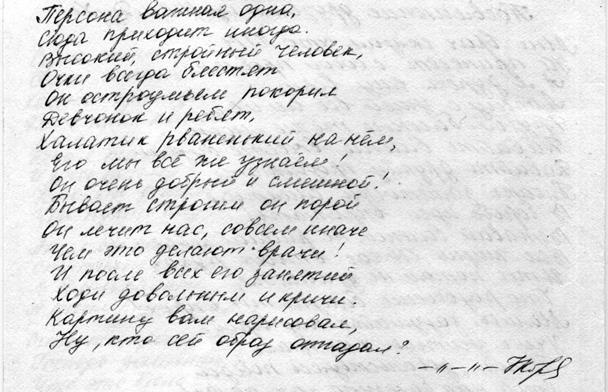 Персона важная одна,
Сюда приходит иногда.
Высокий, стройный человек,
Очи всегда блестят
Он остроумьем покорил
Девчонок и ребят,
Халатик рваненький на нём,
Его мы всё же узнаём!
Он очень добрый и смешной!
Бывает строгим он порой
Он лечит нас, совсем иначе
Чем это делают врачи!
И после всех его занятий
Ходи довольным и кричи.
Картину вам нарисовал,
Ну, кто сей образ отгадал?
—„—„—